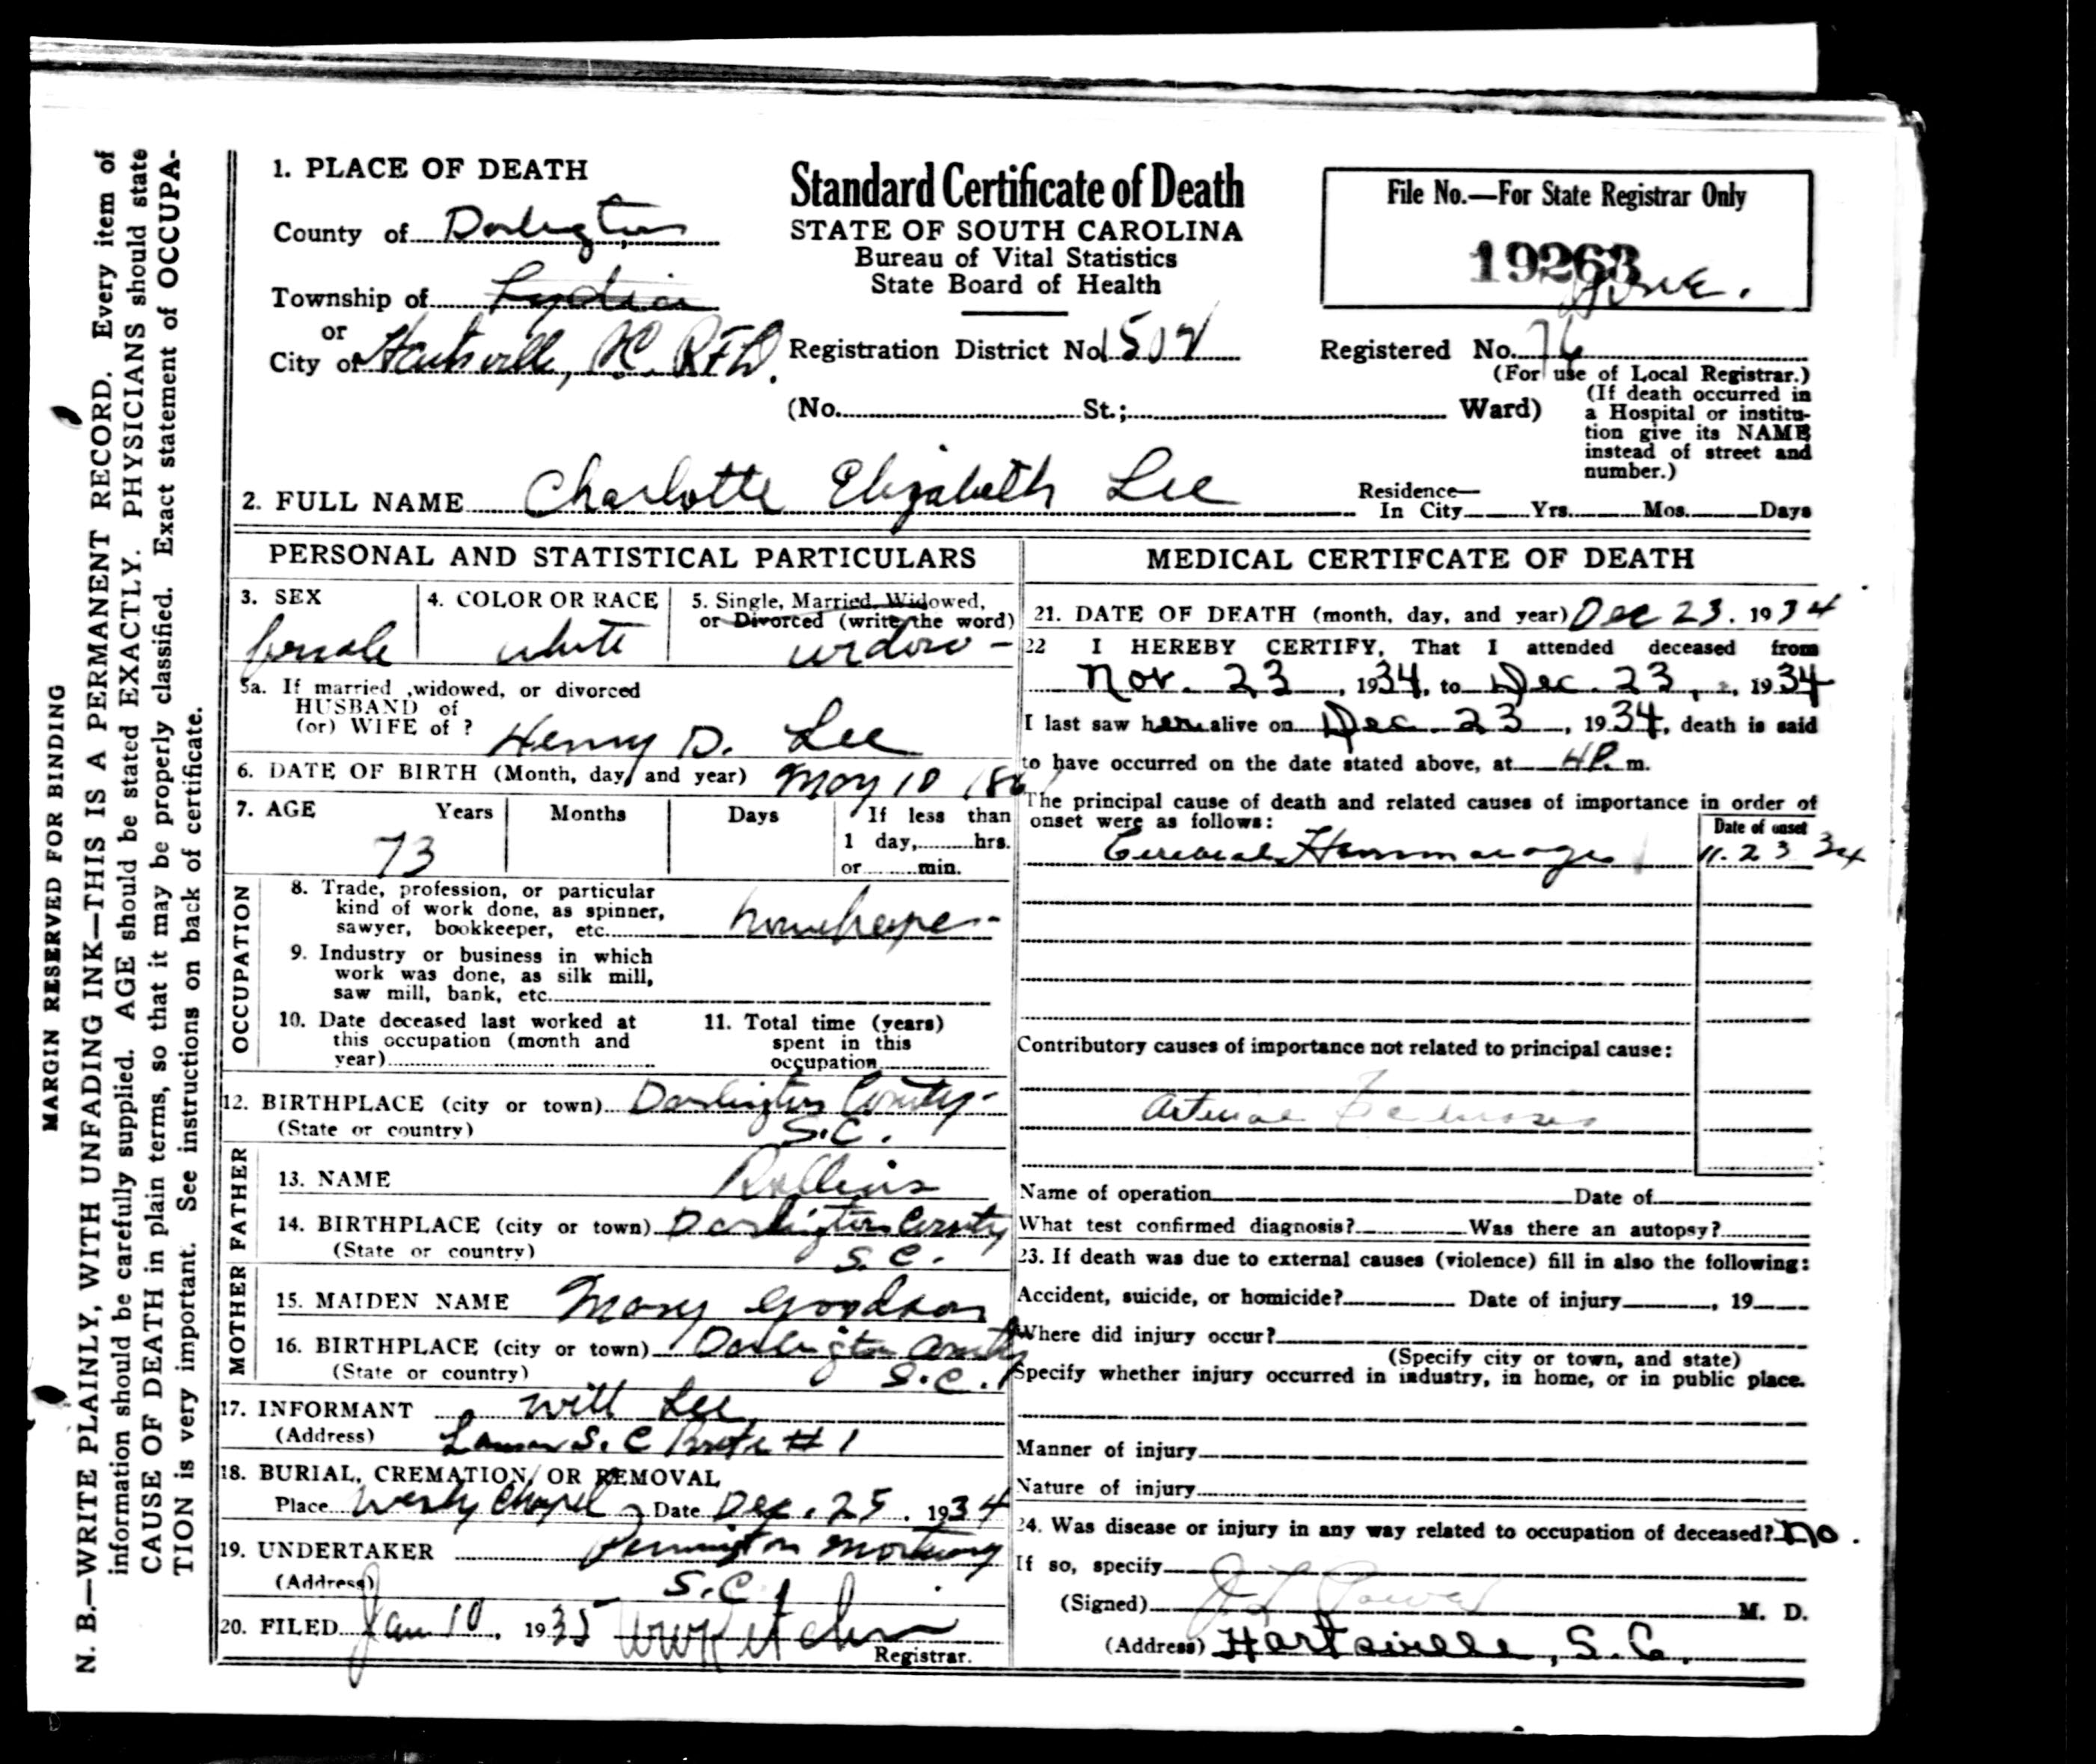 MARGIN RESERVED FOR BINDING
N. B.—WRITE PLAINLY, WITH UNFADING INK—THIS IS A PERMANENT RECORD. Every item of
information should be carefully supplied. AGE should be stated EXACTLY. PHYSICIANS should state
CAUSE OF DEATH in plain terms, so that it may be properly classified. Exact statement of OCCUPA-
TION is very important. See instructions on back of certificate.
1. PLACE OF DEATH
County of Darlington
Township of Lydia
or
City of Hartsville, SC. RFD.
Standard Certificate of Death
STATE OF SOUTH CAROLINA
Bureau of Vital Statistics
State Board of Health
File No.—For State Registrar Only
19263
Registration District No. 1504
Registered No. 76
(For use of Local Registrar.)
(No. St.; Ward)
(If death occurred in
a Hospital or institu-
tion give its NAME
instead of street and
number.)
2. FULL NAME Charlotte Elizabeth Lee
Residence—
In City Yrs. Mos. Days
PERSONAL AND STATISTICAL PARTICULARS
3. SEX
female
4. COLOR OR RACE
white
5. Single, Married, Widowed,
or Divorced (write the word)
widow -
5a. If married ,widowed, or divorced
HUSBAND of
(or) WIFE of ? Henry D. Lee
6. DATE OF BIRTH (Month, day, and year) May 10 186
7. AGE Years Months Days
73
If less than
1 day, hrs.
or min.
OCCUPATION
8. Trade, profession, or particular
kind of work done, as spinner,
sawyer, bookkeeper, etc.
9. Industry or business in which
work was done, as silk mill,
saw mill, bank, etc.
10. Date deceased last worked at
this occupation (month and
year)
11. Total time (years)
spent in this
occupation
12. BIRTHPLACE (city or town) Darlington County-
(State or country) S.C.
FATHER
13. NAME Rollins
14. BIRTHPLACE (city or town) Darlington County
(State or country) S.C.
MOTHER
15. MAIDEN NAME Mary Goodson
16. BIRTHPLACE (city or town) Darlington County
(State or country) S.C.
17. INFORMANT Will Lee
(Address) Lamar S.C Route # 1
18. BURIAL, CREMATION, OR REMOVAL
Place Wesley Chapel Date Dec. 25, 1934
19. UNDERTAKER Mortuary
(Address) S.C.
20. FILED Jan 10, 1935
Registrar.
MEDICAL CERTIFCATE OF DEATH
21. DATE OF DEATH (month, day, and year) Dec 23. 1934
22 I HEREBY CERTIFY, That I attended deceased from
Nov. 23, 1934, to Dec. 23, 1934
I last saw her alive on Dec. 23, 1934, death is said
to have occurred on the date stated above, at 4P. m.
The principal cause of death and related causes of importance in order of
onset were as follows:
Date of onset
Cerebral Hemmorage 11.23 34
Contributory causes of importance not related to principal cause:
Arterial
Name of operation Date of
What test confirmed diagnosis? Was there an autopsy?
23. If death was due to external causes (violence) fill in also the following:
Accident, suicide, or homicide? Date of injury , 19
Where did injury occur?
(Specify city or town, and state)
Specify whether injury occurred in industry, in home, or in public place.
Manner of injury
Nature of injury
24. Was disease or injury in any way related to occupation of deceased? no.
If so, specify
(Signed) M. D.
(Address) Hartsville, S.C.